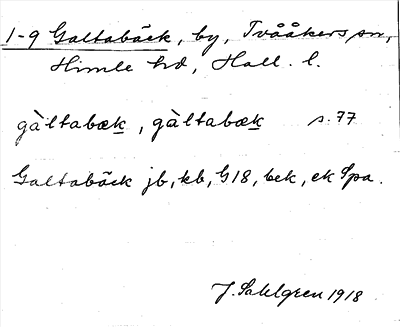 1-9 Galtabäck, by, Tvååkers sn,
Himle hd, Hall. l.
gàltabæk, gàltabæk s. 77
Galtabäck jb, kb, G18, bek, ek Spa.
J. Sahlgren 1918